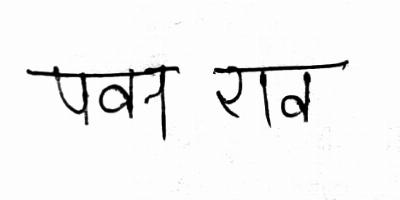 पवन राव